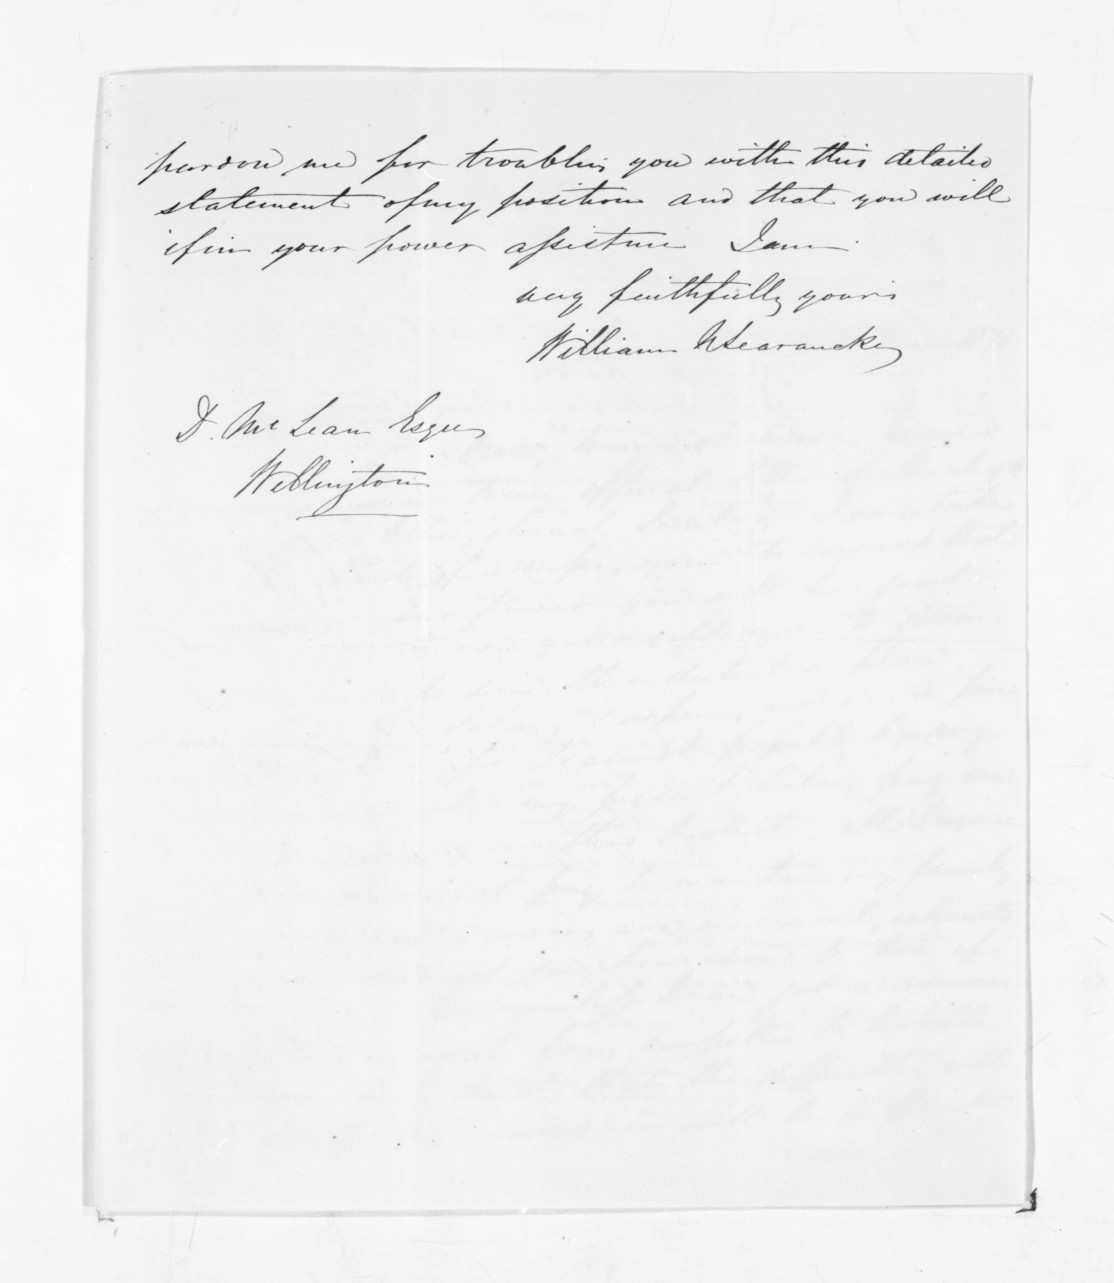 pardon me for troubling you with this detailed
statement of my position and that you will
if in your power assist me I am
very faithfully yours
William N Searancke
D. McLean Esqre
Wellington